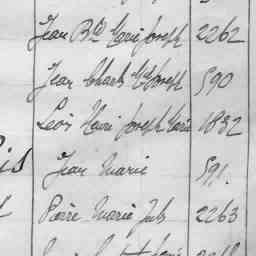 Jean Bte Marie Joseph 2262
Jean Charles Joseph 590
Léon Henri Joseph Marie 1832
Jean Marie 591.
Pierre Marie Jules 2263